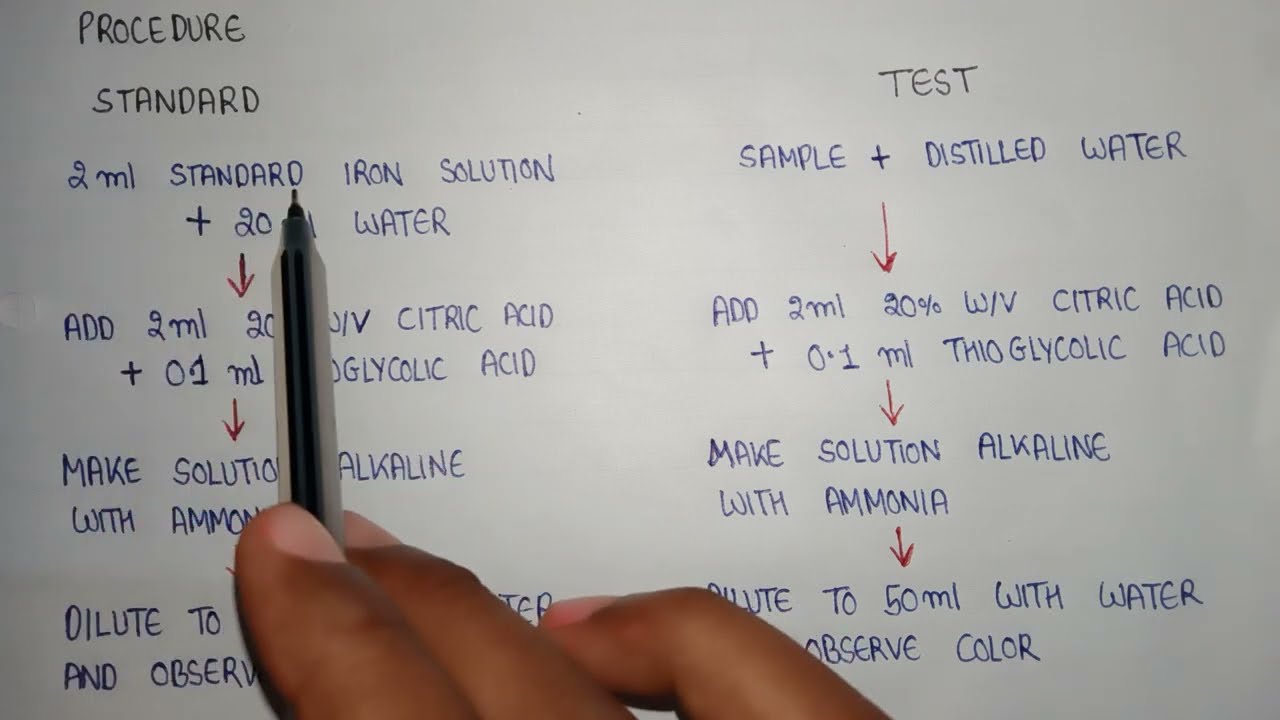 PROCEDURE
STANDARD
2ml STANDARD IRON SOLUTION
+ 20 WATER
ADD 2ml W/V CITRIC ACID
+ 01 ml ACID
MAKE ALKALINE
WITH
DILUTE TO
AND
TEST
SAMPLE + DISTILLED WATER
ADD 2ml 20% W/V CITRIC ACID
+ 0.1 ml THIOGLYCOLIC ACID
MAKE SOLUTION ALKALINE
WITH AMMONIA
TO 50ml WITH WATER
OBSERVE COLOR